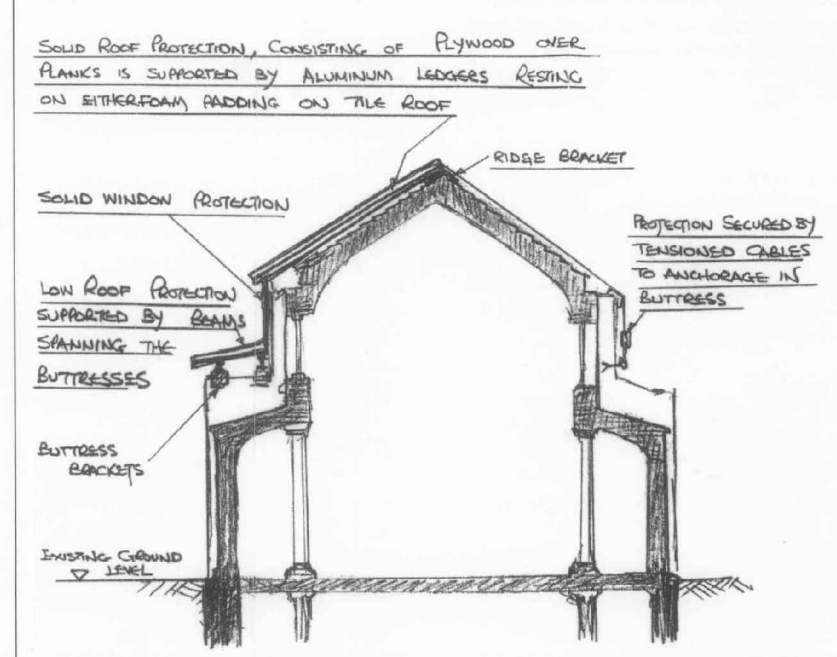 SOLID ROOF PROTECTION, CONSISTING OF PLYWOOD OVER
PLANKS IS SUPPORTED BY ALUMINUM LEDGERS RESTING
ON EITHER FOAM PADDING ON TILE ROOF
RIDGE BRACKET
SOLID WINDOW PROTECTION
PROTECTION SECURED BY
TENSIONED CABLES
TO ANCHORAGE IN
BUTTRESS
LOW ROOF PROTECTION
SUPPORTED BY BEAMS
SPANNING THE
BUTTRESSES
BUTTRESS
BRACKETS
EXISTING GROUND
LEVEL